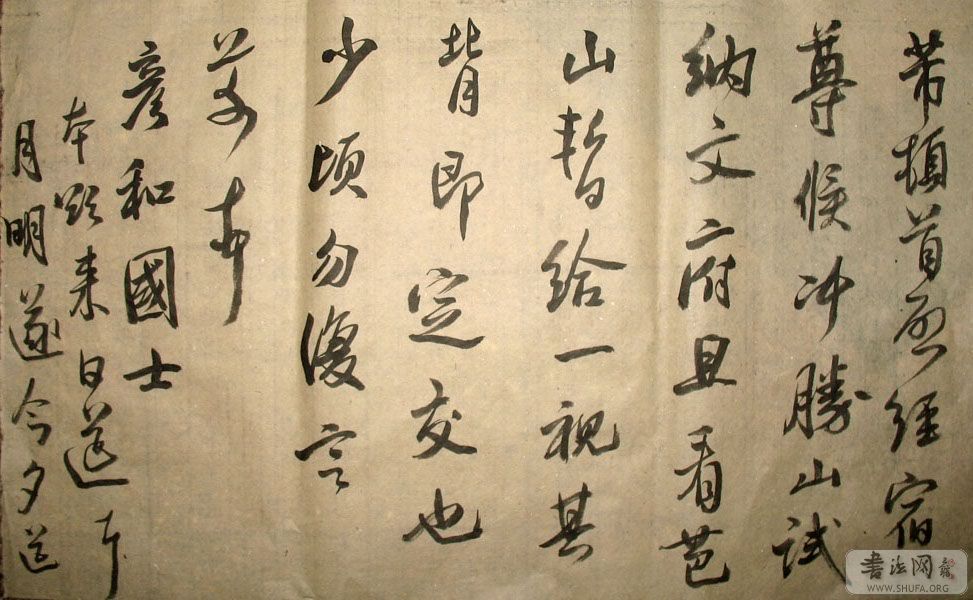 芾頓首啓經宿
尊候冲勝山試
納文府且看芭
山暫給一視其
背即定交也
少頃勿復言
芾頓首
彦和國士
本欲来日送
月明遂今夕送
耳
書法网
WWW.SHUFA.ORG